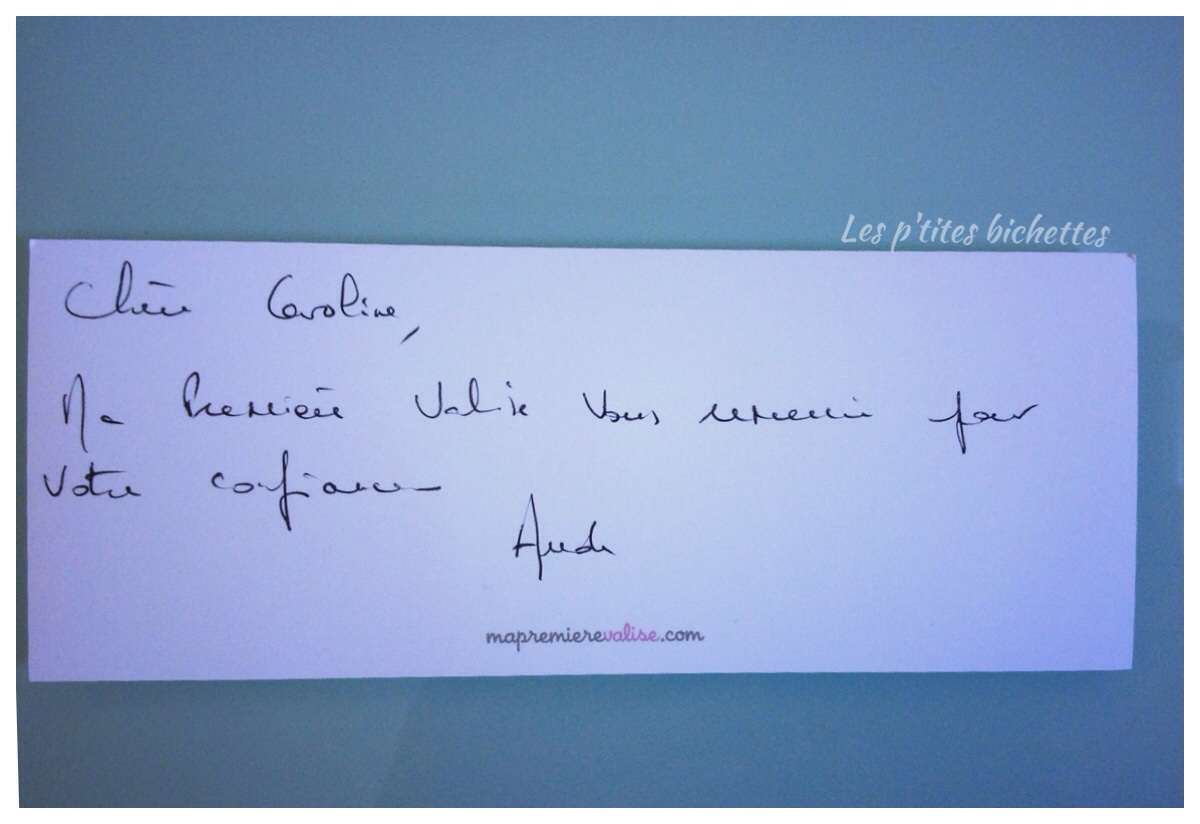 Les p'tites bichettes
Chère Caroline,
Ma Première Valise vous remercie pour
votre confiance
Aude
mapremierevalise.com